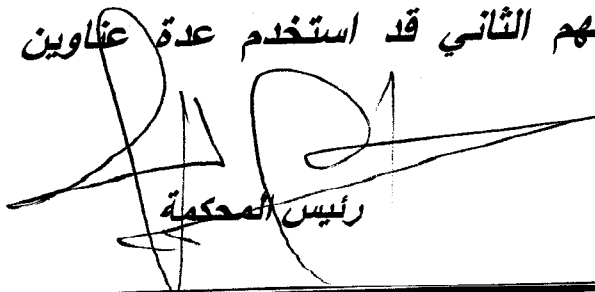 هم الثاني قد استخدم عدة عناوين
رئيس المحكمة